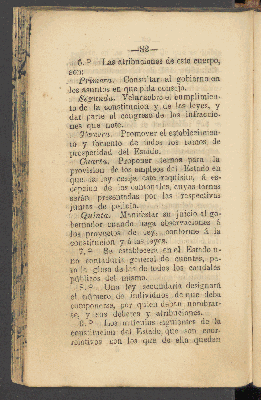 —82—
6.º Las atribuciones de este cuerpo,
son:
Primera. Consultar al gobierno en
los asuntos en que pida consejo.
Segunda. Velar sobre el cumplimien-
to de la constitucion y de las leyes, y
dar parte al congreso de las infraccio-
nes que note.
Tercera. Promover el establecimien-
to y fomento de todos los ramos de
prosperidad del Estado.
Cuarta. Proponer ternas para la
provision de los empleos del Estado en
que la ley exija este requisito, á es-
cepcion de los cantonales, cuyas ternas
serán presentadas por las respectivas
juntas de policía.
Quinta. Manifestar su juicio al go-
bernador cuando haga observaciones á
los proyectos de ley, conforme á la
constitucion y á las leyes.
7.º Se establecerá en el Estado u-
na contaduría general de cuentas, pa-
ra la glosa de las de todos los caudales
públicos del mismo.
8.º Una ley secundaria designará
el número de individuos de que deba
componerse, por quien deban nombrar-
se, y sus deberes y atribuciones.
9.º Los artículos siguientes de la
constitucion del Estado, que son cor-
relativos con los que de ella quedan